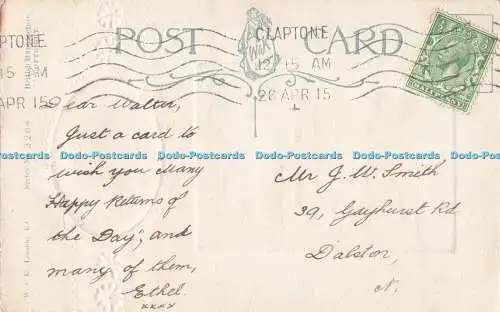 POST CARD
CLAPTON.E
12.15 AM
26 APR 15
PTON.E
15 AM
APR 15
Dear Walter,
Just a card to
wish you Many
Happy Returns of
the Day, and
many of them,
Ethel.
xxxx
Mr J. W. Smith
39, Gayhurst Rd
Dalston,
N.
Dodo-Postcards Dodo-Postcards Dodo-Postcards Dodo-Postcards Dodo-Postcards